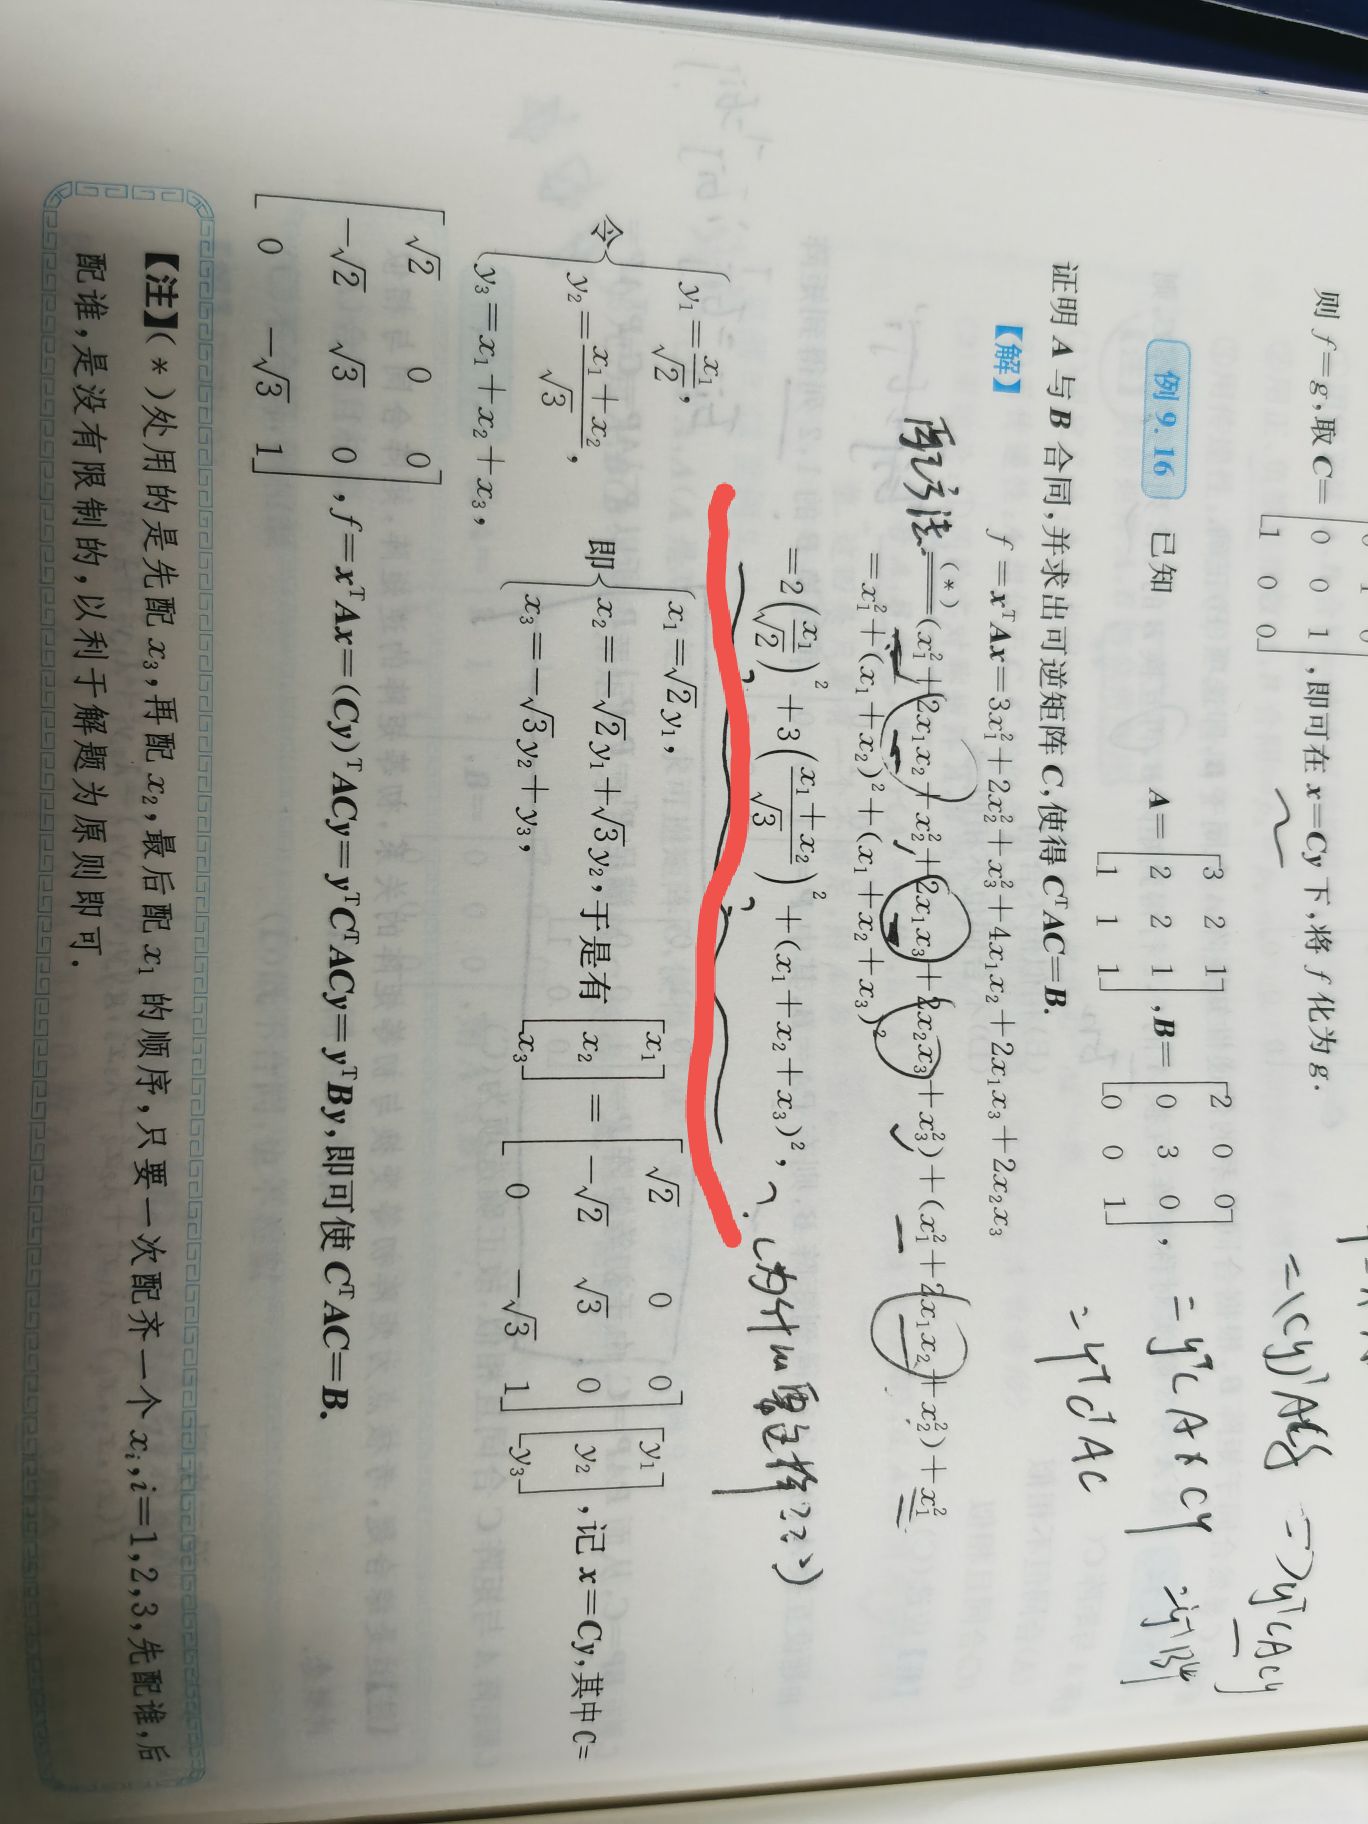 则 f=g,取 C= [0 0 1; 1 0 0],即可在 x=Cy 下,将 f 化为 g.
=(Cy)ᵀACy
=yᵀCᵀACy
例 9.16 已知 A=[3 2 1; 2 2 1; 1 1 1],B=[2 0 0; 0 3 0; 0 0 1],
证明 A 与 B 合同,并求出可逆矩阵 C,使得 CᵀAC=B.
=yᵀCᵀAC
【解】 f=xᵀAx=3x₁²+2x₂²+x₃²+4x₁x₂+2x₁x₃+2x₂x₃
配方法 (*)=(x₁²+2x₁x₂+x₂²+2x₁x₃+2x₂x₃+x₃²)+(x₁²+2x₁x₂+x₂²)+x₁²
=x₁²+(x₁+x₂)²+(x₁+x₂+x₃)²
=2(x₁/√2)²+3((x₁+x₂)/√3)²+(x₁+x₂+x₃)²,
(为什么要这样???)
令{y₁=x₁/√2, y₂=(x₁+x₂)/√3, y₃=x₁+x₂+x₃, 即{x₁=√2y₁, x₂=-√2y₁+√3y₂, x₃=-√3y₂+y₃, 于是有 [x₁; x₂; x₃]=[√2 0 0; -√2 √3 0; 0 -√3 1][y₁; y₂; y₃],记 x=Cy,其中 C=
[√2 0 0; -√2 √3 0; 0 -√3 1],f=xᵀAx=(Cy)ᵀACy=yᵀCᵀACy=yᵀBy,即可使 CᵀAC=B.
【注】(*)处用的是先配 x₃,再配 x₂,最后配 x₁ 的顺序,只要一次配齐一个 xᵢ,i=1,2,3,先配谁,后
配谁,是没有限制的,以利于解题为原则即可.